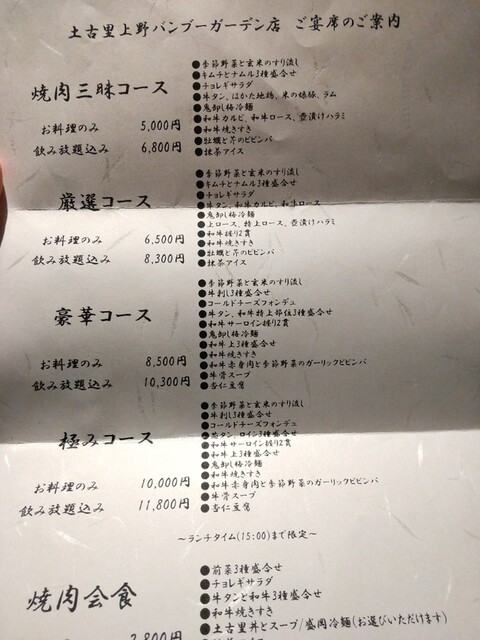 土古里上野バンブーガーデン店 ご宴席のご案内
焼肉三昧コース
お料理のみ 5,000円
飲み放題込み 6,800円
●季節野菜と玄米のすり流し
●キムチとナムル3種盛合せ
●チョレギサラダ
●牛タン、はかた地鶏、米の娘豚、ラム
●鬼卸し梅冷麺
●和牛カルビ、和牛ロース、壺漬けハラミ
●和牛焼きすき
●牡蠣と芹のビビンバ
●抹茶アイス
厳選コース
お料理のみ 6,500円
飲み放題込み 8,300円
●季節野菜と玄米のすり流し
●キムチとナムル3種盛合せ
●チョレギサラダ
●牛タン、和牛カルビ、和牛ロース
●鬼卸し梅冷麺
●上ロース、特上ロース、壺漬けハラミ
●和牛握り2貫
●和牛焼きすき
●牡蠣と芹のビビンバ
●抹茶アイス
豪華コース
お料理のみ 8,500円
飲み放題込み 10,300円
●季節野菜と玄米のすり流し
●牛刺し3種盛合せ
●コールドチーズフォンデュ
●牛タン、和牛特上部位3種盛合せ
●和牛サーロイン握り2貫
●鬼卸し梅冷麺
●和牛上3種盛合せ
●和牛焼きすき
●和牛赤身肉と季節野菜のガーリックビビンバ
●牛骨スープ
●杏仁豆腐
極みコース
お料理のみ 10,000円
飲み放題込み 11,800円
●季節野菜と玄米のすり流し
●牛刺し3種盛合せ
●コールドチーズフォンデュ
タン、ロイン3種盛合せ
●和牛サーロイン握り2貫
●和牛上3種盛合せ
●鬼卸し梅冷麺
●和牛焼きすき
●和牛赤身肉と季節野菜のガーリックビビンバ
●牛骨スープ
●杏仁豆腐
～ランチタイム(15:00)まで限定～
焼肉会食
●前菜3種盛合せ
●チョレギサラダ
●牛タンと和牛3種盛合せ
●和牛焼きすき
●土古里丼とスープ/盛岡冷麺(お選びいただけます)